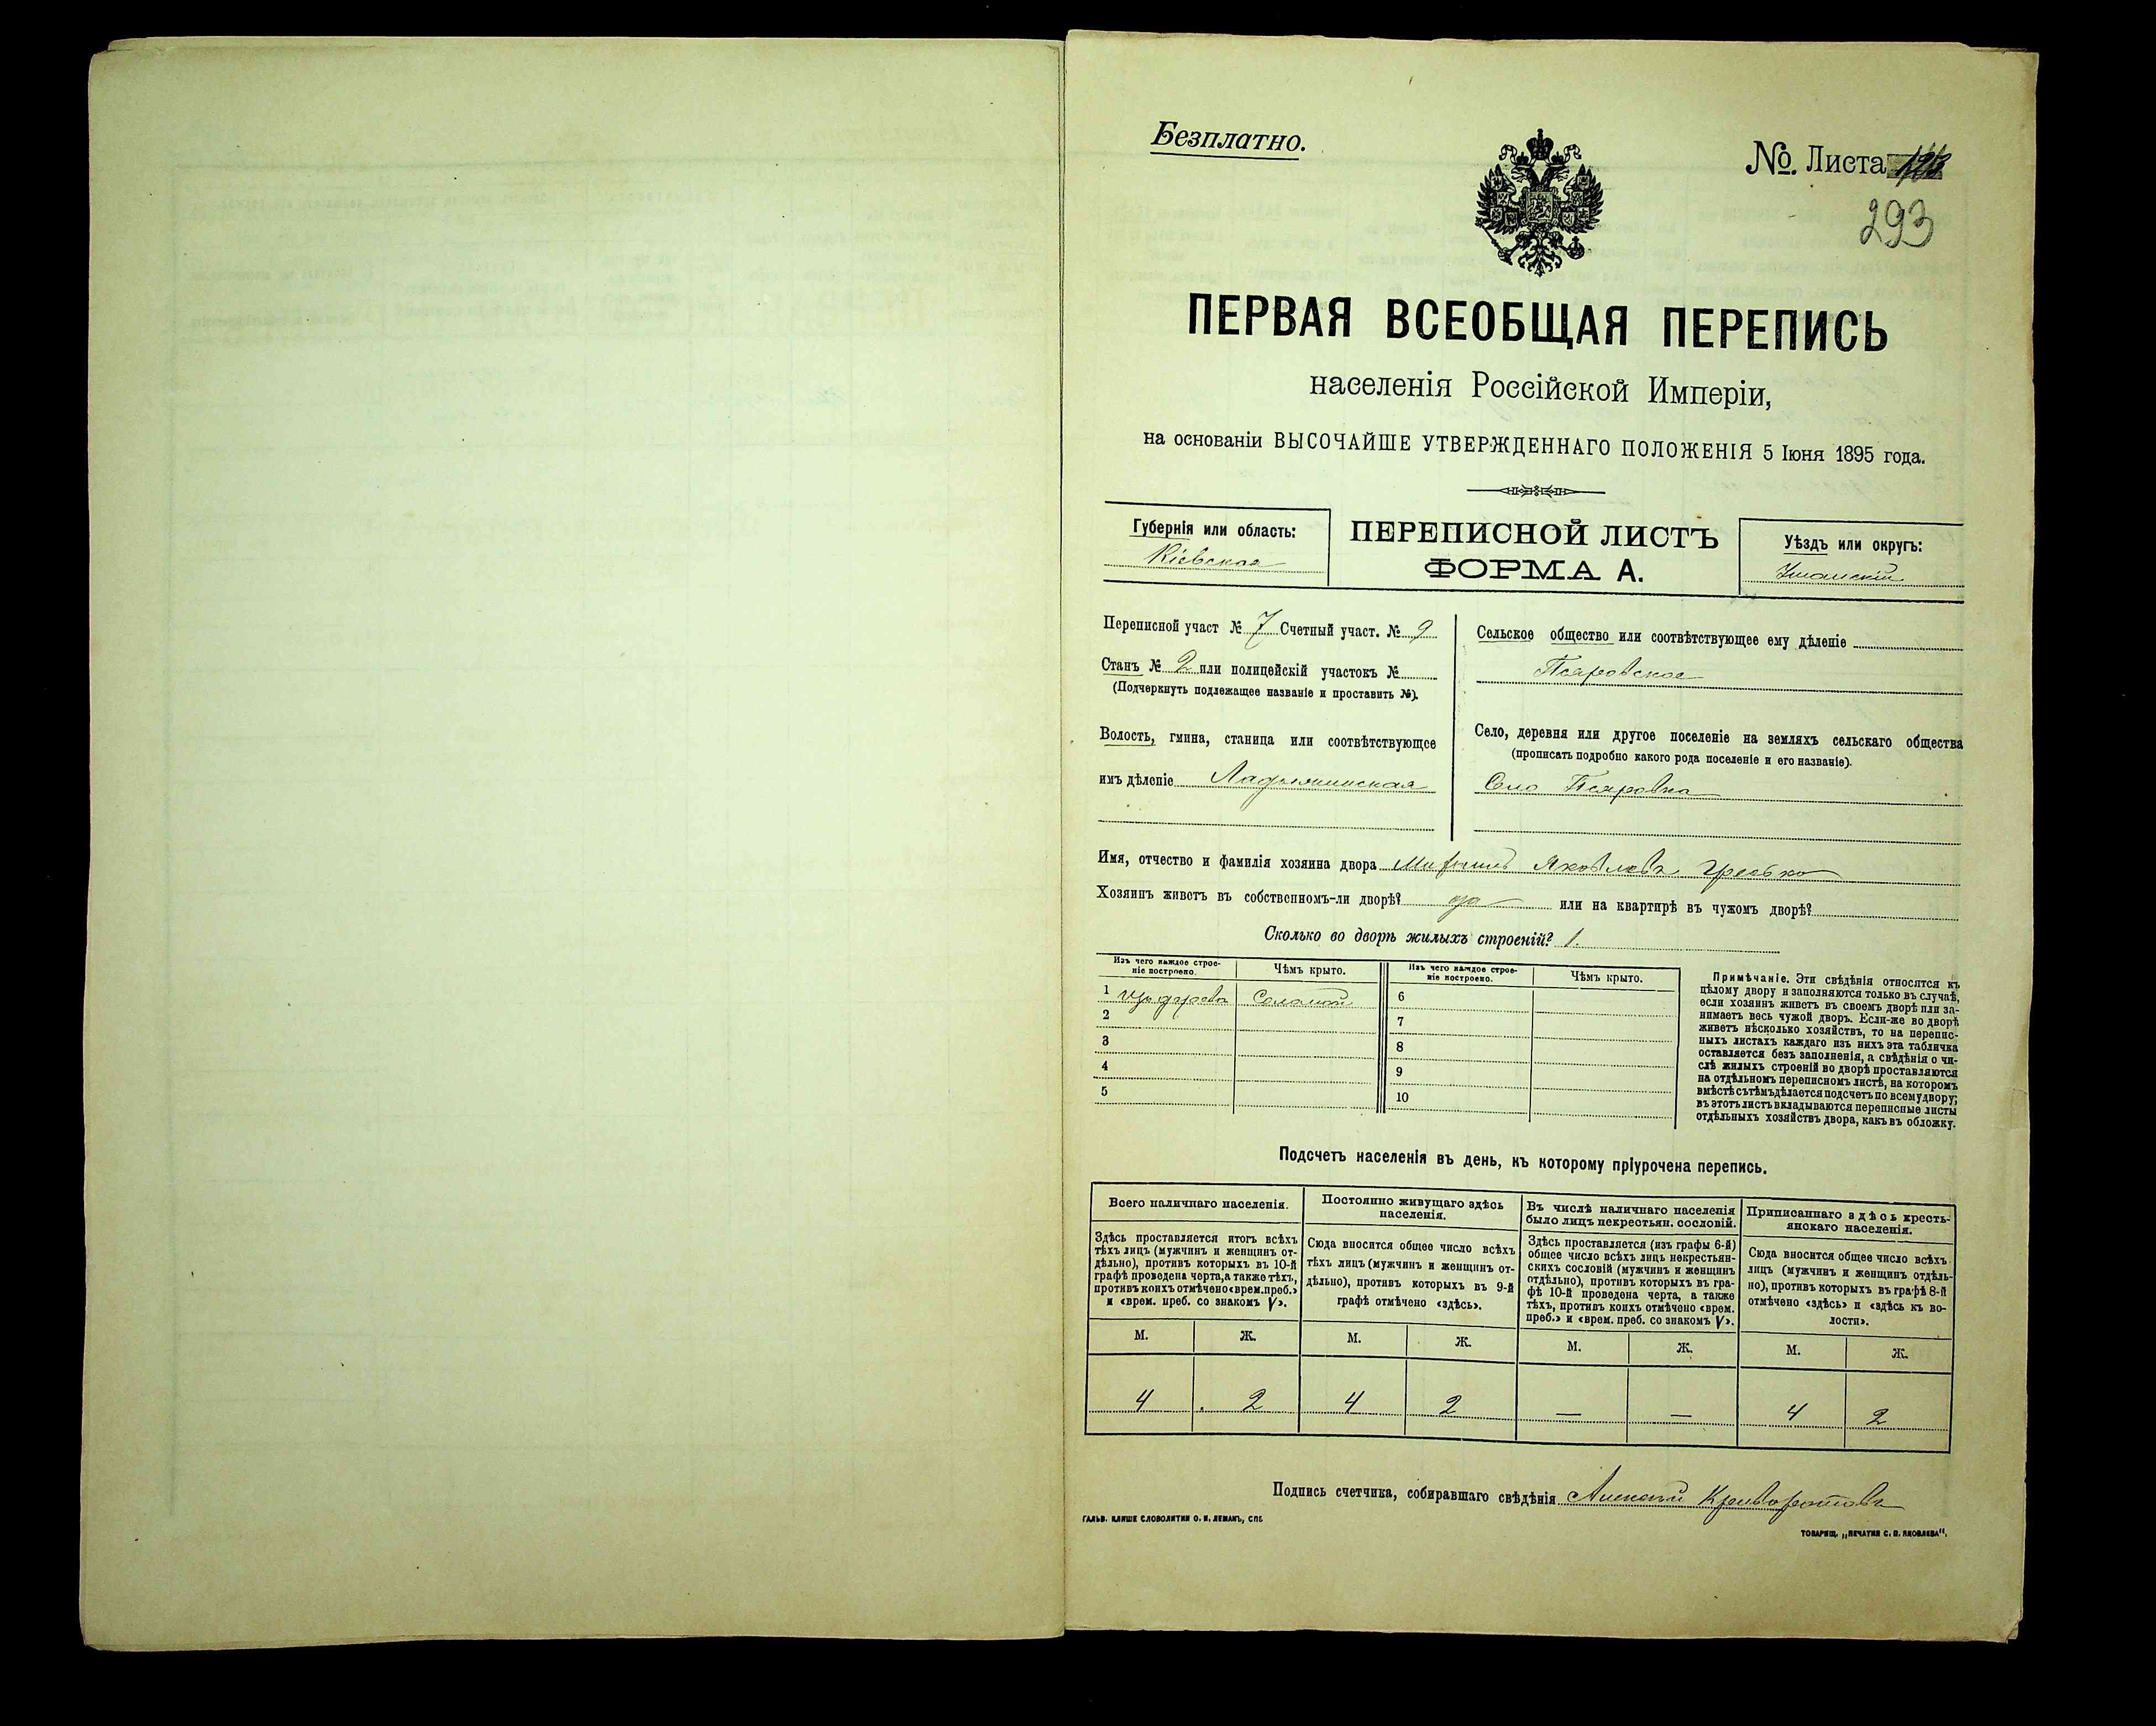 Безплатно.
№. Листа
293
ПЕРВАЯ ВСЕОБЩАЯ ПЕРЕПИСЬ
населенія Россійской Имперіи,
на основаніи ВЫСОЧАЙШЕ УТВЕРЖДЕННАГО ПОЛОЖЕНІЯ 5 Іюня 1895 года.
Губернія или область:
Кіевская
ПЕРЕПИСНОЙ ЛИСТЪ
ФОРМА А.
Уѣздъ или округъ:
Уманскій
Переписной участ № 7 Счетный участ. № 9
Станъ № 2 или полицейскій участокъ №
(Подчеркнуть подлежащее названіе и проставить №).
Волость, гмина, станица или соотвѣтствующее
имъ дѣленіе Ладыжинская
Сельское общество или соотвѣтствующее ему дѣленіе
Псяровское
Село, деревня или другое поселеніе на земляхъ сельскаго общества
(прописать подробно какого рода поселеніе и его названіе).
Село Псяровка
Имя, отчество и фамилія хозяина двора Яковлевъ
Хозяинъ живетъ въ собственномъ-ли дворѣ? да или на квартирѣ въ чужомъ дворѣ?
Сколько во дворѣ жилыхъ строеній? 1.
Изъ чего каждое строе-
ніе построено.
Чѣмъ крыто.
Изъ чего каждое строе-
ніе построено.
Чѣмъ крыто.
1 изъ дерева Соломой
2
3
4
5
6
7
8
9
10
Примѣчаніе. Эти свѣдѣнія относятся къ
цѣлому двору и заполняются только въ случаѣ,
если хозяинъ живетъ въ своемъ дворѣ или за-
нимаетъ весь чужой дворъ. Если-же во дворѣ
живетъ нѣсколько хозяйствъ, то на перепис-
ныхъ листахъ каждаго изъ нихъ эта табличка
оставляется безъ заполненія, а свѣдѣнія о чи-
слѣ жилыхъ строеній во дворѣ проставляются
на отдѣльномъ переписномъ листѣ, на которомъ
вмѣстѣ съ тѣмъ дѣлается подсчетъ по всему двору;
въ этотъ листъ вкладываются переписные листы
отдѣльныхъ хозяйствъ двора, какъ въ обложку.
Подсчетъ населенія въ день, къ которому пріурочена перепись.
Всего наличнаго населенія.
Здѣсь проставляется итогъ всѣхъ
тѣхъ лицъ (мужчинъ и женщинъ от-
дѣльно), противъ которыхъ въ 10-й
графѣ проведена черта, а также тѣхъ,
противъ коихъ отмѣчено «врем. преб.»
и «врем. преб. со знакомъ V».
Постоянно живущаго здѣсь
населенія.
Сюда вносится общее число всѣхъ
тѣхъ лицъ (мужчинъ и женщинъ от-
дѣльно), противъ которыхъ въ 9-й
графѣ отмѣчено «здѣсь».
Въ числѣ наличнаго населенія
было лицъ некрестьян. сословій.
Здѣсь проставляется (изъ графы 6-й)
общее число всѣхъ лицъ некрестьян-
скихъ сословій (мужчинъ и женщинъ
отдѣльно), противъ которыхъ въ гра-
фѣ 10-й проведена черта, а также
тѣхъ, противъ коихъ отмѣчено «врем.
преб.» и «врем. преб. со знакомъ V».
Приписаннаго здѣсь кресть-
янскаго населенія.
Сюда вносится общее число всѣхъ
лицъ (мужчинъ и женщинъ отдѣль-
но), противъ которыхъ въ графѣ 8-й
отмѣчено «здѣсь» и «здѣсь къ во-
лости».
М. Ж. М. Ж. М. Ж. М. Ж.
4 2 4 2 — — 4 2
Подпись счетчика, собиравшаго свѣдѣнія Алексѣй Криворотовъ
ГАЛЬВ. КЛИШЕ СЛОВОЛИТНИ О. И. ЛЕМАНЪ, СПБ.
ТОВАРИЩ. „ПЕЧАТНЯ С. П. ЯКОВЛЕВА“.